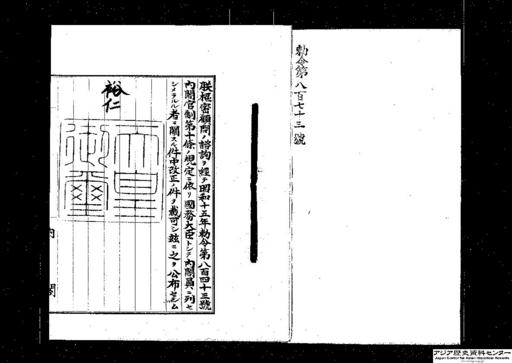 勅令第八百七十三號
朕樞密顧問ノ諮詢ヲ經テ昭和十五年勅令第八百四十三號
内閣官制第十條ノ規定ニ依リ國務大臣トシテ内閣員ニ列セ
シメラルル者ニ關スル件中改正ノ件ヲ裁可シ玆ニ之ヲ公布セシム
裕仁
天皇御璽
内閣
アジア歴史資料センター
Japan Center for Asian Historical Records